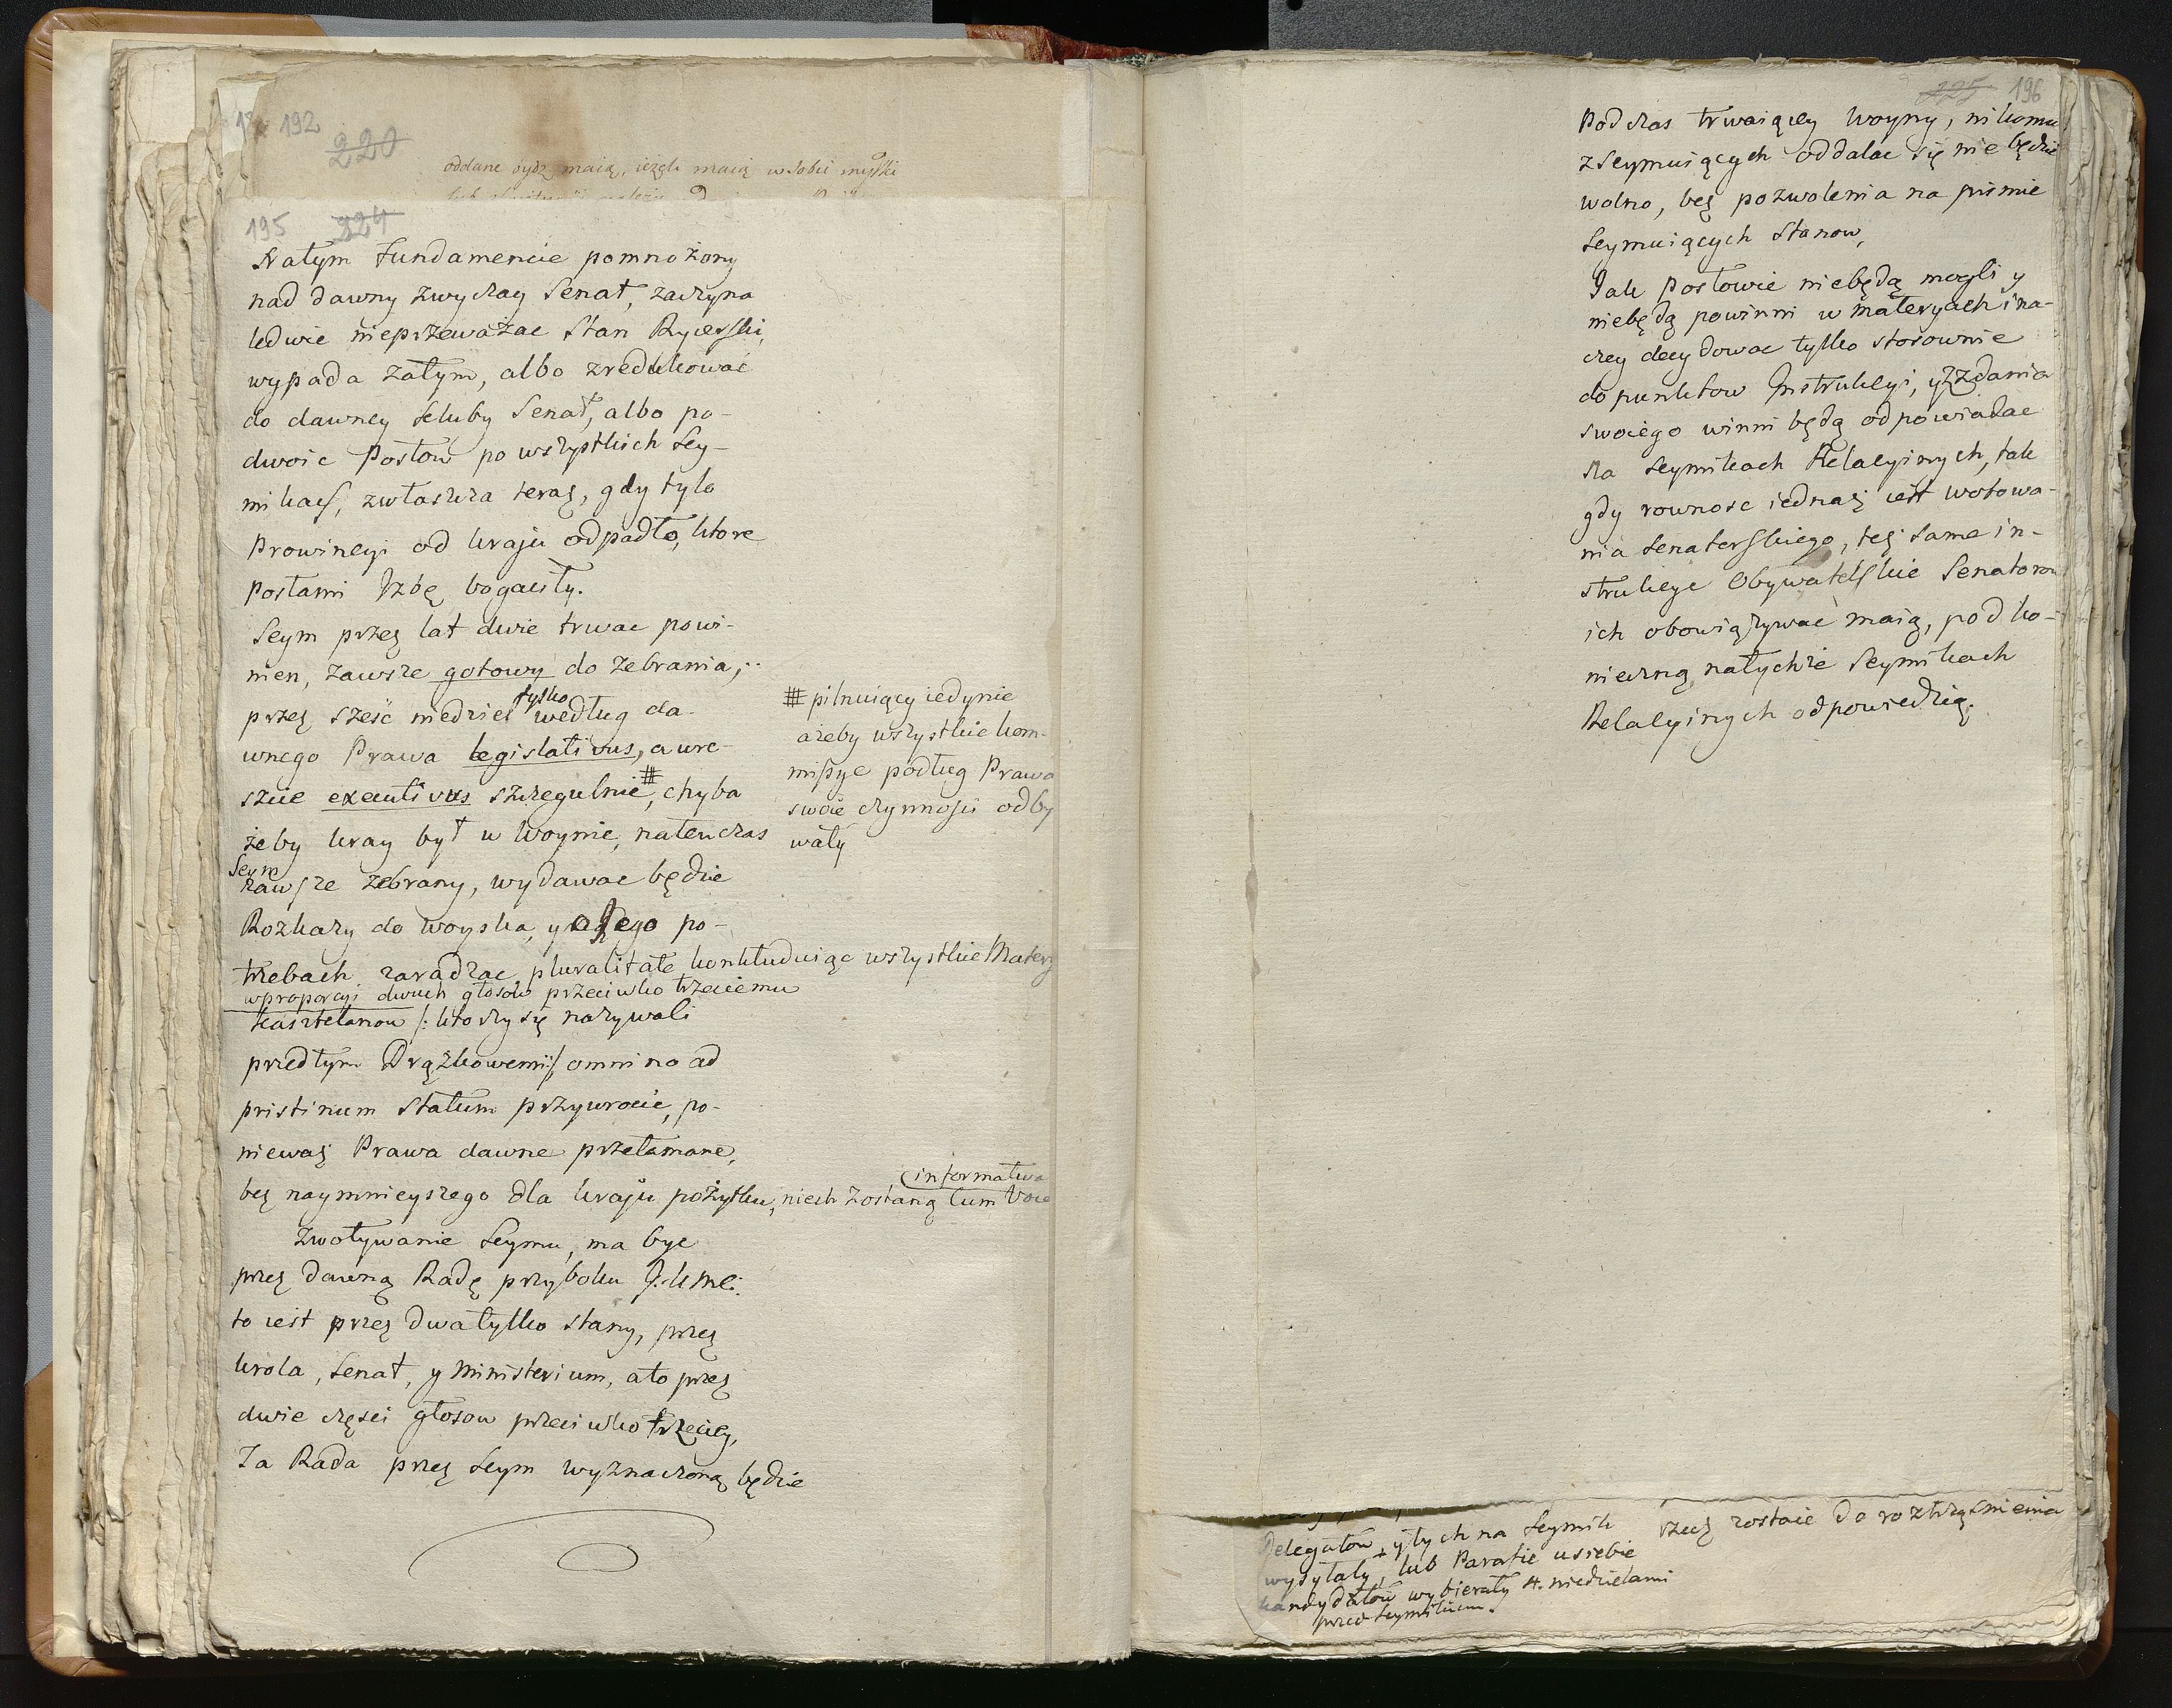 192
220
oddane bydź maią, ieżeli maią w sobie myśli
195 224
Natym Fundamencie pomnożony
nad dawny zwyczay Senat, zaczyna
ledwie nieprzeważac Stan Rycerski,
wypada zatym, albo zredukować
do dawney liczby Senat, albo po-
dwoic Posłow po wszystkich Sey-
mikach, zwłaszcza teraz, gdy tylo
Prowincyi od kraju odpadło, ktore
Posłami Izbę bogaciły.
Seym przez lat dwie trwac powi-
nien, zawsze gotowy do zebrania,
przez sześć niedziel tylko według da-
wnego Prawa legislativus, a wre-
szcie executivus szczegulnie #, chyba
żeby kray był w Woynie, natenczas
Seym
zawsze zebrany, wydawac będzie
Rozkazy do woyska, y o jego po-
trzebach zaradzac, pluralitate konkluduiąc wszystkie Matery
w proporcyi dwuch głosow przeciwko trzeciemu
Kasztelanow /: ktorzy się nazywali
przedtym Drążkowemi :/ omnino ad
pristinum statum przywrocic, po-
niewaz Prawa dawne przełamane,
bez naymnieyszego dla kraju pożytku, niech zostaną cum Voce
informativa
Zwoływanie Seymu, ma byc
przez dawną Radę przyboku J.K.Mci.
to iest przez dwa tylko stany, przez
krola, Senat, y Ministerium, a to przez
dwie częsci głosow przeciwko trzeciey,
Ta Rada przez Seym wyznaczoną będzie
# pilnuiący iedynie
azeby wszystkie kom-
missye podług Prawa
swoie czynności odby
wały
225 196
Podczas trwaiącey Woyny, nikomu
z Seymuiących oddalac się nie będzie
wolno, bez pozwolenia na pismie
Seymuiących Stanow,
Jak Posłowie niebędą mogli y
niebędą powinni w materyach ina-
czey decydowac tylko stosownie
do punktow Instrukcyi, y z zdania
swoiego winni będą odpowiadac
na Seymikach Relacyinych, tak
gdy rownosc iednaż iest wotowa-
nia Senatorskiego, też same in-
strukcye Obywatelskie Senatorow
ich obowiązywać maią, pod ko-
nieczną natychże Seymikach
Relacyinych odpowiedzią.
Delegatow y tych na Seymik
wysyłały, lub Parafie u siebie
kandydatow wybierały 4. niedzielami
przed Seymikiem.
rzecz zostaie do roztrząsnienia